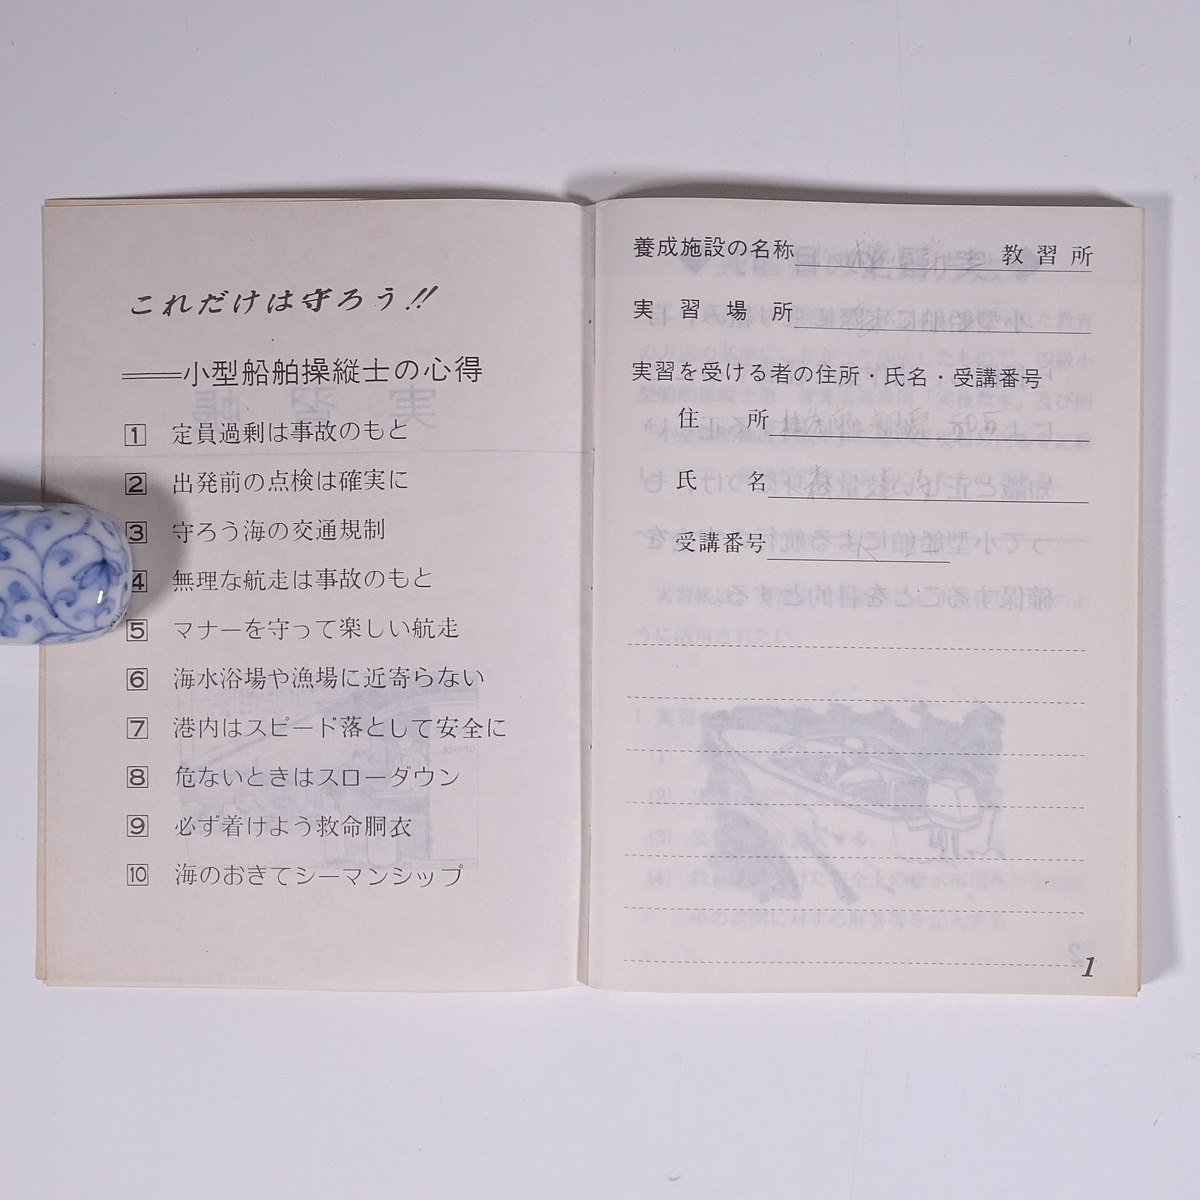 これだけは守ろう!!
――小型船舶操縦士の心得
1 定員過剰は事故のもと
2 出発前の点検は確実に
3 守ろう海の交通規制
4 無理な航走は事故のもと
5 マナーを守って楽しい航走
6 海水浴場や漁場に近寄らない
7 港内はスピード落として安全に
8 危ないときはスローダウン
9 必ず着けよう救命胴衣
10 海のおきてシーマンシップ
養成施設の名称 教習所
実習場所
実習を受ける者の住所・氏名・受講番号
住所
氏名
受講番号
1